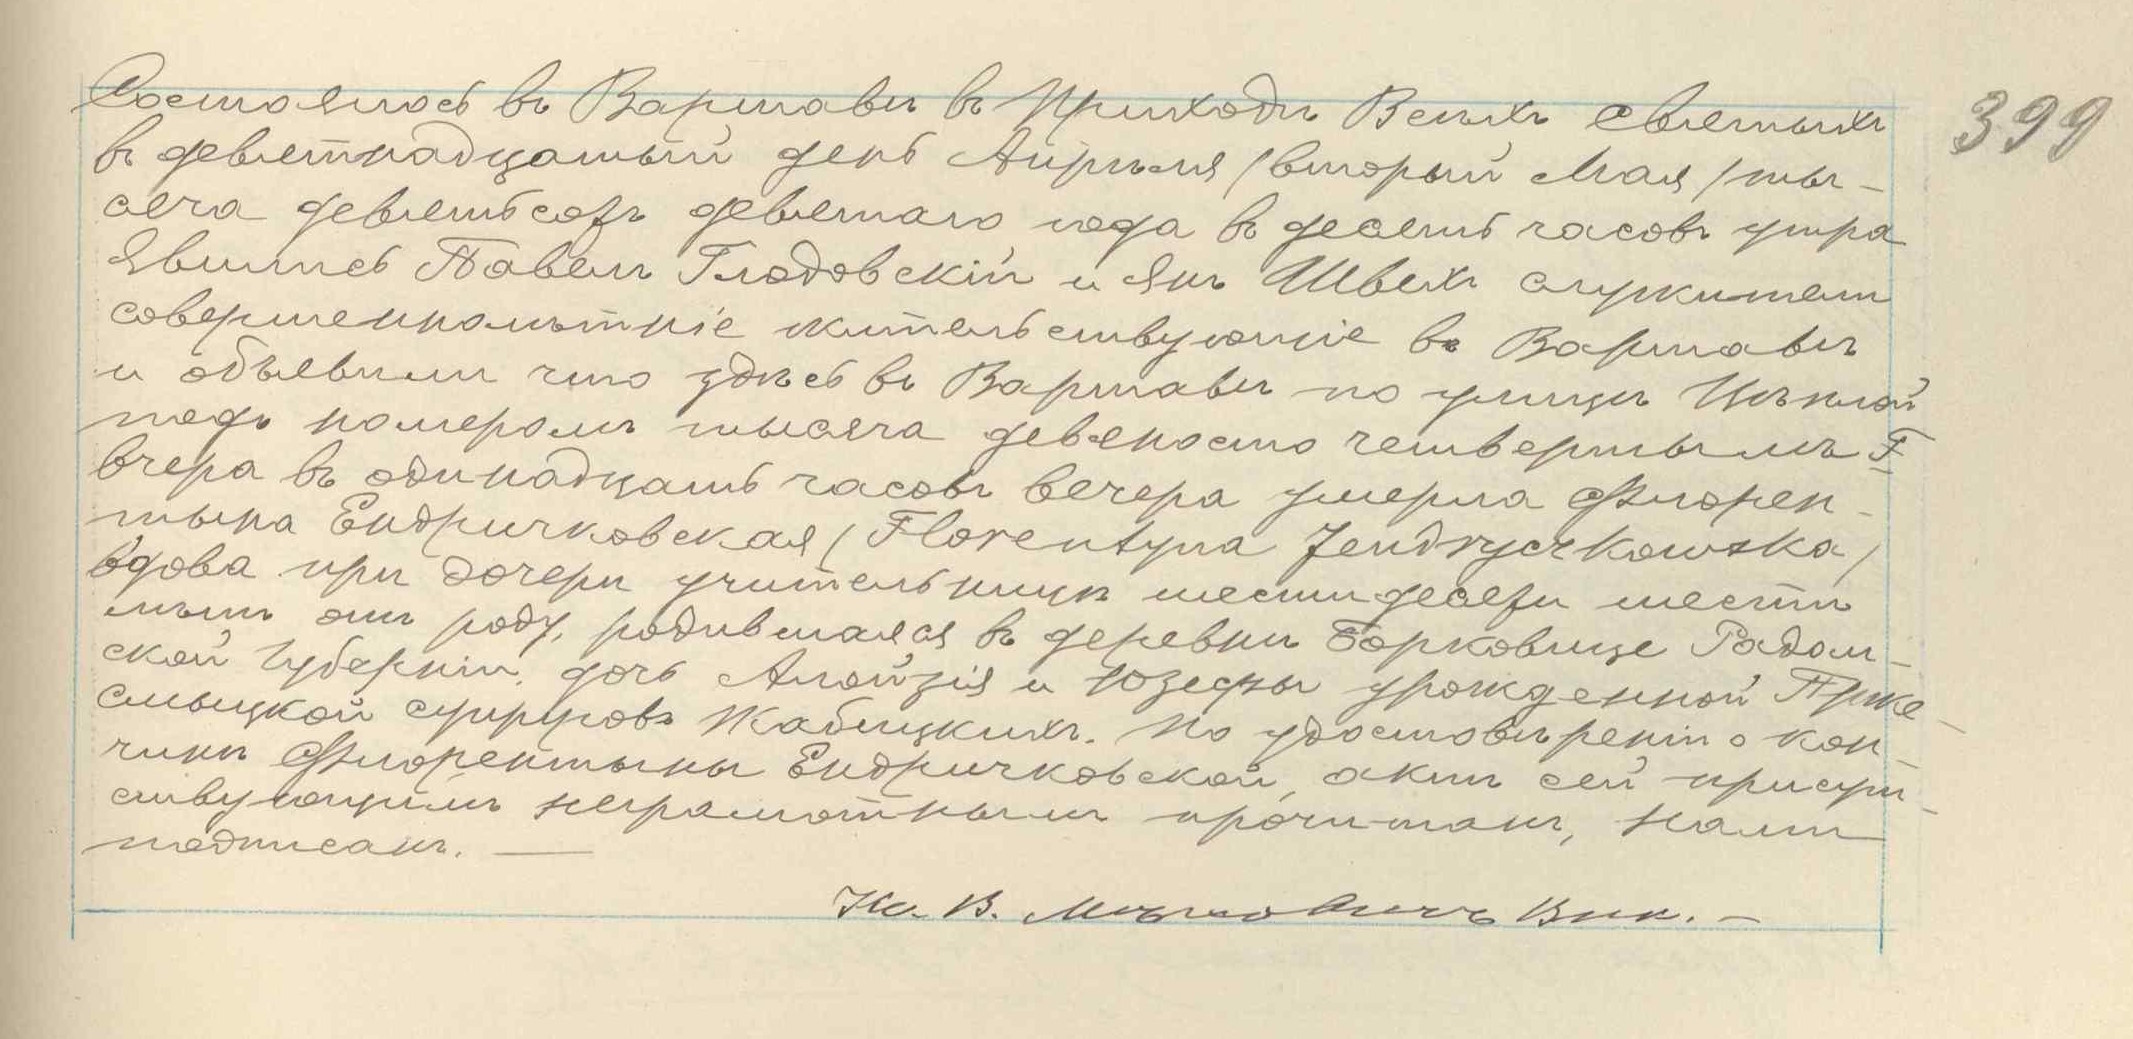 Состоялось въ Варшавѣ въ Приходѣ Всѣхъ Святыхъ
399
въ девятнадцатый день Апрѣля /второй Мая/ ты-
сяча девятьсотъ девятаго года въ десять часовъ утра
Явились Павелъ Глодовскій и Янъ Швехъ служители
совершеннолѣтніе жительствующіе въ Варшавѣ
и объявили что здѣсь въ Варшавѣ по улицѣ Цѣплой
подъ номеромъ тысяча девяносто четвертымъ F
вчера въ одинадцать часовъ вечера умерла Флорен-
тына Ендричковская /Florentyna Jendryczkowska/
вдова при дочери учительницѣ шестидесяти шести
лѣтъ отъ роду, родившаяся въ деревнѣ Борковице Радом-
ской Губерніи, дочь Алойзія и Юзефы урожденной
супруговъ Жабицкихъ. По удостовѣреніи о кон-
чинѣ Флорентыны Ендричковской, актъ сей присут-
ствующимъ неграмотнымъ прочитанъ, Нами
подписанъ. —
Кс. В. Вик. —